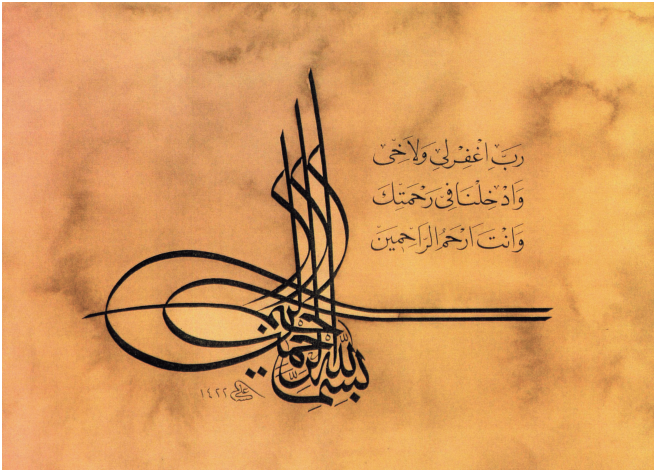 رَبِّ اغْفِرْ لِى وَلِاَخِى
وَاَدْخِلْنَا فِى رَحْمَتِكَ
وَاَنْتَ اَرْحَمُ الرَّاحِمِينَ
بسم الله الرحمن الرحيم
١٤٢٢